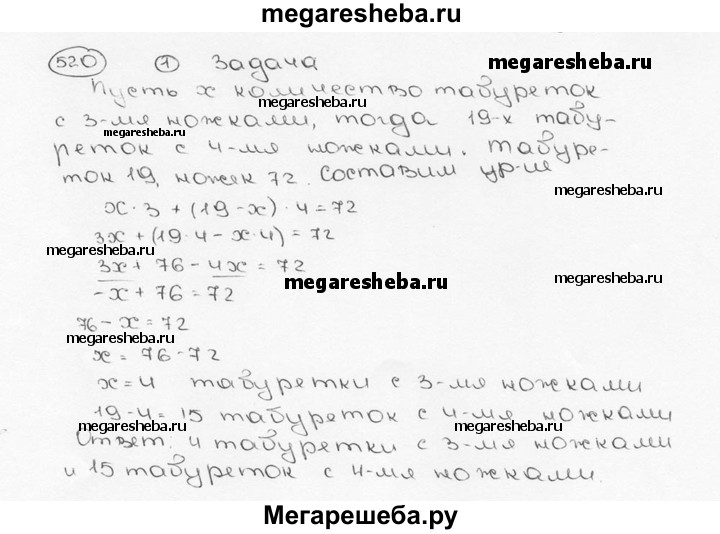 megaresheba.ru
520 1 Задача
megaresheba.ru
Пусть x количество табуреток
megaresheba.ru
с 3-мя ножками, тогда 19-x табу-
megaresheba.ru
реток с 4-мя ножками. Табуре-
ток 19, ножек 72. Составим ур-ие
megaresheba.ru
x·3 + (19-x)·4=72
3x + (19·4 - x·4) = 72
megaresheba.ru
3x + 76 - 4x = 72
megaresheba.ru
megaresheba.ru
-x + 76 = 72
76 - x = 72
megaresheba.ru
x = 76-72
x=4 табуретки с 3-мя ножками
19-4=15 табуреток с 4-мя ножками
megaresheba.ru
megaresheba.ru
Ответ: 4 табуретки с 3-мя ножками
и 15 табуреток с 4-мя ножками.
Мегарешеба.ру